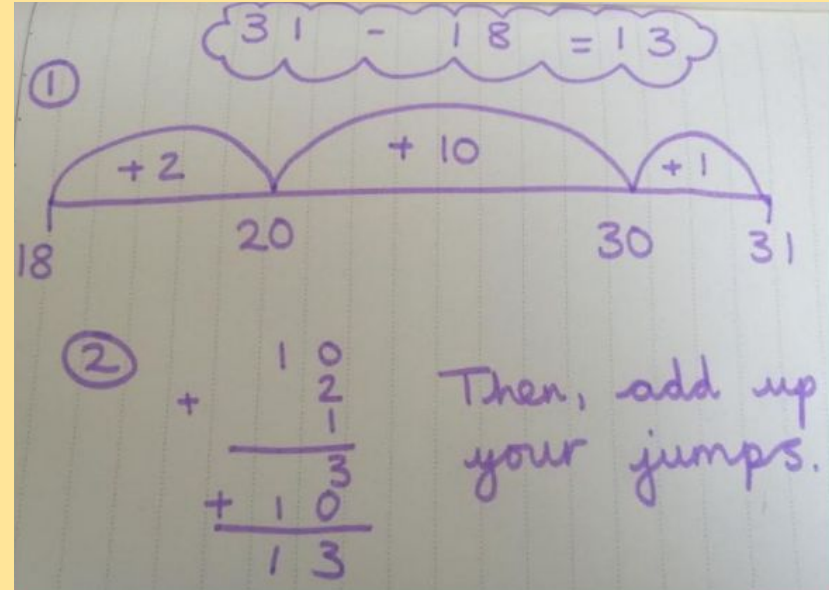 31 - 18 = 13
1
+ 2 + 10 + 1
18 20 30 31
2
10
+ 2
1
3
+ 10
13
Then, add up
your jumps.